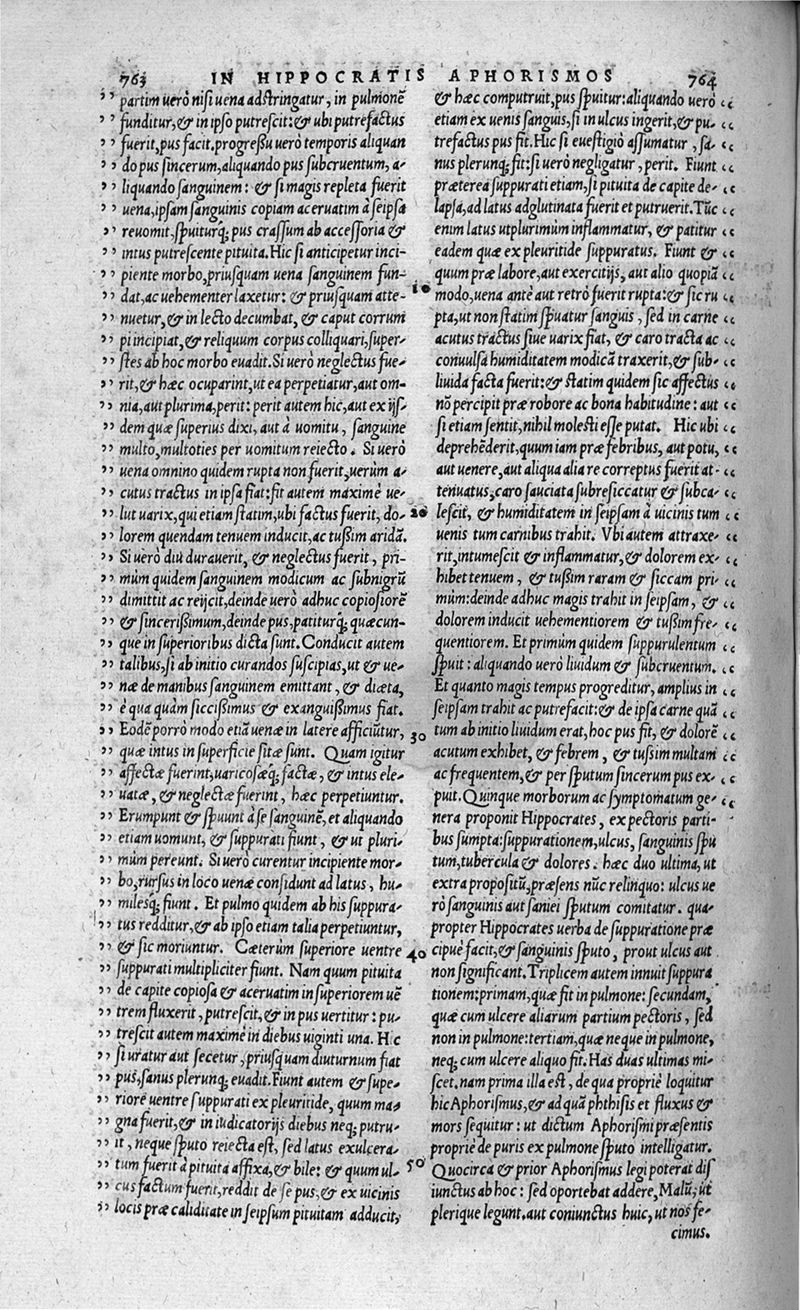 763 IN HIPPOCRATIS APHORISMOS 764
” partim uerò nisi uena adstringatur, in pulmonẽ
” funditur, & in ipso putrescit: & ubi putrefactus
” fuerit, pus facit. progressu uerò temporis aliquan
” do pus sincerum, aliquando pus subcruentum, a-
” liquando sanguinem: & si magis repleta fuerit
” uena, ipsam sanguinis copiam aceruatim à seipsa
” reuomit, spuiturq; pus crassum ab accessoria &
” intus putrescente pituita. Hic si anticipetur inci-
” piente morbo, priusquam uena sanguinem fun-
” dat, ac uehementer laxetur: & priusquam atte-
” nuetur, & in lecto decumbat, & caput corrum
” pi incipiat, & reliquum corpus colliquari, super-
” stes ab hoc morbo euadit. Si uerò neglectus fue-
” rit, & hæc ocuparint, ut ea perpetiatur, aut om-
” nia, aut plurima, perit: perit autem hic, aut ex ijs-
” dem quæ superius dixi, aut à uomitu, sanguine
” multo, multoties per uomitum reiecto. Si uerò
” uena omnino quidem rupta non fuerit, uerùm a-
” cutus tractus in ipsa fiat: fit autem maximè ue-
” lut uarix, qui etiam statim, ubi factus fuerit, do-
” lorem quendam tenuem inducit, ac tussim aridã.
” Si uerò diu durauerit, & neglectus fuerit, pri-
” mùm quidem sanguinem modicum ac subnigrũ
” dimittit ac reijcit, deinde uerò adhuc copiosiorẽ
” & sincerissimum, deinde pus, patiturq; quæcun-
” que in superioribus dicta sunt. Conducit autem
” talibus, si ab initio curandos suscipias, ut & ue-
” næ de manibus sanguinem emittant, & diæta,
” è qua quàm siccissimus & exanguissimus fiat.
” Eodẽ porrò modo etiã uenæ in latere afficiũtur,
” quæ intus in superficie sitæ sunt. Quam igitur
” affectæ fuerint, uaricosæq; factæ, & intus ele-
” uatæ, & neglectæ fuerint, hæc perpetiuntur.
” Erumpunt & spuunt à se sanguinẽ, et aliquando
” etiam uomunt, & suppurati fiunt, & ut pluri-
” mùm pereunt. Si uerò curentur incipiente mor-
” bo, rursus in loco uenæ considunt ad latus, hu-
” milesq; fiunt. Et pulmo quidem ab his suppura-
” tus redditur, & ab ipso etiam talia perpetiuntur,
” & sic moriuntur. Cæterùm superiore uentre
” suppurati multipliciter fiunt. Nam quum pituita
” de capite copiosa & aceruatim in superiorem uẽ
” trem fluxerit, putrescit, & in pus uertitur: pu-
” trescit autem maximè in diebus uiginti una. Hic
” si uratur aut secetur, priusquam diuturnum fiat
” pus, sanus plerunq; euadit. Fiunt autem & supe-
” riorè uentre suppurati ex pleuritide, quum ma-
” gna fuerit, & in iudicatorijs diebus neq; putru-
” it, neque sputo reiecta est, sed latus exulcera-
” tum fuerit à pituita affixa, & bile: & quum ul-
” cus factum fuerit, reddit de se pus, & ex uicinis
” locis præ caliditate in seipsum pituitam adducit,
10
20
30
40
50
& hæc computruit, pus spuitur: aliquando uerò “
etiam ex uenis sanguis, si in ulcus ingerit, & pu- “
trefactus pus fit. Hic si euestigiò assumatur, sa- “
nus plerunq; fit: si uerò negligatur, perit. Fiunt “
præterea suppurati etiam, si pituita de capite de- “
lapsa, ad latus adglutinata fuerit et putruerit. Tũc “
enim latus utplurimùm inflammatur, & patitur “
eadem quæ ex pleuritide suppuratus. Fiunt & “
quum præ labore, aut exercitijs, aut alio quopiã “
modo, uena antè aut retrò fuerit rupta: & sic ru “
pta, ut non statim spuatur sanguis, sed in carne “
acutus tractus siue uarix fiat, & caro tracta ac “
conuulsa humiditatem modicã traxerit, & sub- “
liuida facta fuerit: & statim quidem sic affectus “
nõ percipit præ robore ac bona habitudine: aut “
si etiam sentit, nihil molesti esse putat. Hic ubi “
deprehẽderit, quum iam præ febribus, aut potu, “
aut uenere, aut aliqua alia re correptus fuerit at- “
tenuatus, caro sauciata subresiccatur & subca- “
lescit, & humiditatem in seipsam à uicinis tum “
uenis tum carnibus trahit. Vbi autem attraxe- “
rit, intumescit & inflammatur, & dolorem ex- “
hibet tenuem, & tussim raram & siccam pri- “
mùm: deinde adhuc magis trahit in seipsam, & “
dolorem inducit uehementiorem & tussim fre- “
quentiorem. Et primùm quidem suppurulentum “
spuit: aliquando uerò liuidum & subcruentum. “
Et quanto magis tempus progreditur, amplius in “
seipsam trahit ac putrefacit: & de ipsa carne quã “
tum ab initio liuidum erat, hoc pus fit, & dolorẽ “
acutum exhibet, & febrem, & tussim multam “
ac frequentem, & per sputum sincerum pus ex- “
puit. Quinque morborum ac symptomatum ge- “
nera proponit Hippocrates, ex pectoris parti-
bus sumpta: suppurationem, ulcus, sanguinis spu
tum, tubercula & dolores. hæc duo ultima, ut
extra propositũ, præsens nũc relinquo: ulcus ue
rò sanguinis aut saniei sputum comitatur. qua-
propter Hippocrates uerba de suppuratione præ
cipuè facit, & sanguinis sputo, prout ulcus aut
non significant. Triplicem autem innuit suppura
tionem: primam, quæ fit in pulmone: secundam,
quæ cum ulcere aliarum partium pectoris, sed
non in pulmone: tertiam, quæ neque in pulmone,
neq; cum ulcere aliquo fit. Has duas ultimas mi-
scet. nam prima illa est, de qua propriè loquitur
hic Aphorismus, & ad quã phthisis et fluxus &
mors sequitur: ut dictum Aphorismi præsentis
propriè de puris ex pulmone sputo intelligatur.
Quocirca & prior Aphorismus legi poterat dis
iunctus ab hoc: sed oportebat addere, Malũ, ut
plerique legunt. aut coniunctus huic, ut nos fe-
cimus.